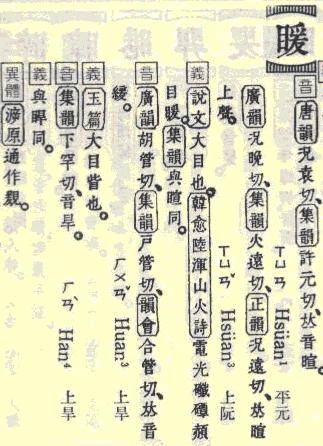 䁔
音 唐韻況袁切、集韻許元切、𠀤音暄。 ㄒㄩㄢ Hsüan¹ 平元
廣韻況晚切、集韻火遠切、正韻況遠切、𠀤暄
上聲。 ㄒㄩㄢˇ Hsüan³ 上阮
義 說文大目也。韓愈陸渾山火詩電光䃸磹頳
目䁔。集韻與暄同。
音 廣韻胡管切、集韻戶管切、韻會合管切、𠀤音
緩。 ㄏㄨㄢˇ Huan³ 上旱
義 玉篇大目眥也。
音 集韻下罕切、音旱。 ㄏㄢˋ Han⁴ 上旱
義 與睅同。
異體 原通作